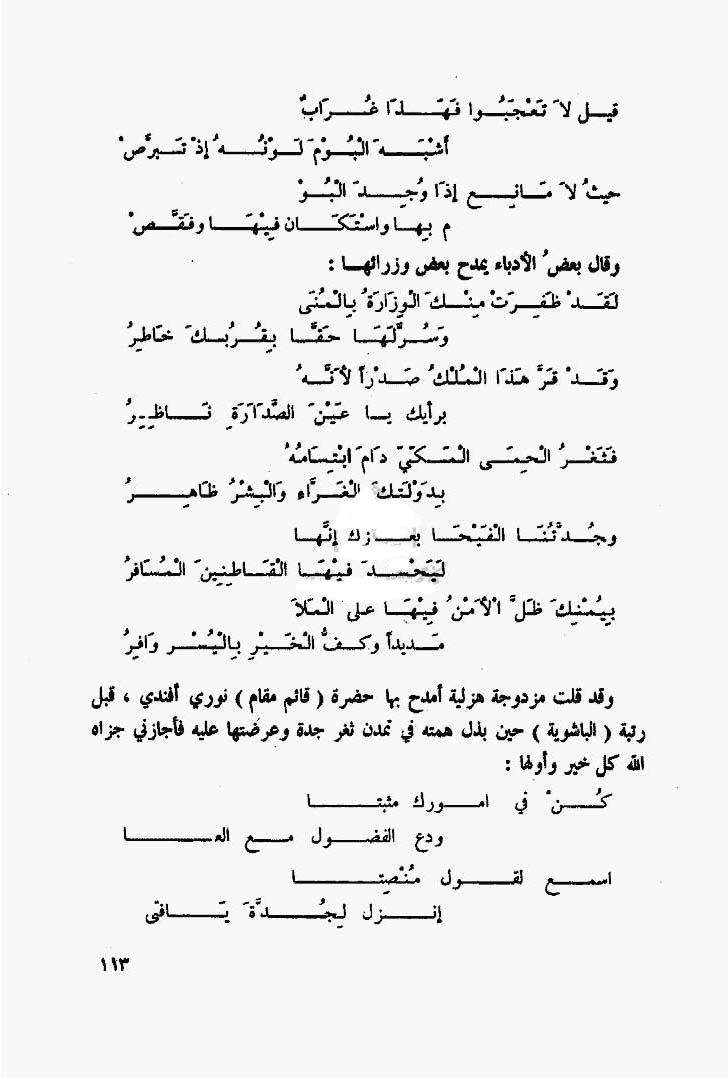 قيل لاَ تَعْجَبُوا فَهَذَا غُرَابٌ
أَشْبَهَ الْبُوْمَ لَوْنُهُ إذْ تَبرَّصْ
حيثُ لاَ مَانِع إذَا وُجِدَ الْبُوْ
م بِها واسْتَكَان فِيْهَا وفَقَّصْ
وقال بعضُ الأدباء يمدح بعض وزرائها :
لَقَدْ ظَفِرَتْ مِنْكَ الْوِزَارَةُ بِالْمُنَى
وَسُرَّلَهَا حَقًّا بِقُرْبِكَ خَاطِرُ
وَقَدْ قَرَّ هَذَا الْمُلْكُ صَدْراً لأَنَّهُ
برأيك يا عَيْنَ الصَّدَارَةِ نَاظِرُ
فَثَغْرُ الْحِمَى الْمَكّيِّ دَامَ ابْتِسَامُهُ
بِدَوْلَتِكَ الْغَرَّاءِ وَالْبِشْرُ ظَاهِرُ
وجُدَّتُنَا الْفَيْحَا بعَزك إنَّهَا
لَيَحْسِدَ فيْهَا الْقَاطِنِينَ الْمُسَافرُ
بِيُمْنِكَ ظَلَّ الْأَمْنُ فِيْهَا على الْمَلاَ
مَديداً وكفُّ الْخَيْرِ بِالْيُسْرِ وَافِرُ
وقد قلت مزدوجة هزلية أمدح بها حضرة ( قائم مقام ) نوري أفندي ، قبل
رتبة ( الباشوية ) حين بذل همته في تمدن ثغر جدة وعرضتها عليه فأجازني جزاه
الله كل خير وأولها :
كُنْ في امورك مثبتا
ودع الفضول مع العا
اسمع لقول مُنْصِتا
إنزل لِجُدَّةَ يَافتى
١١٣